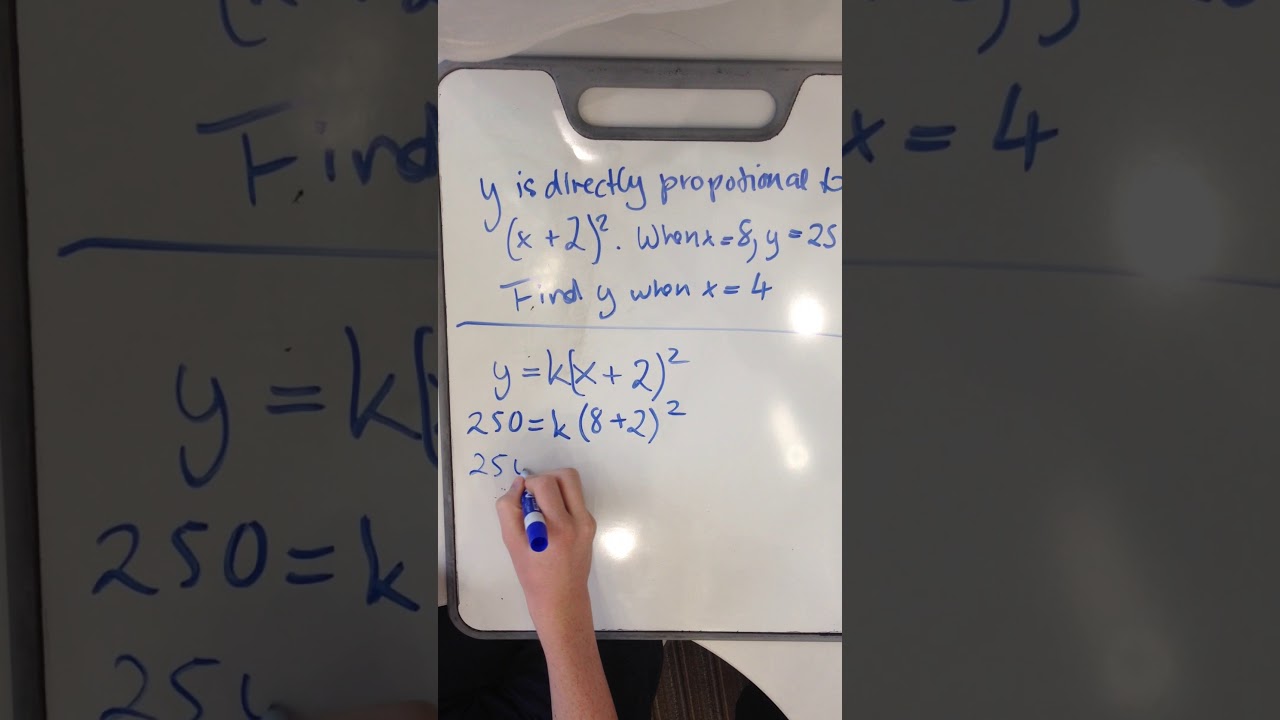 y is directly propotional to
(x + 2)². When x = 8, y = 25
Find y when x = 4
y = k(x + 2)²
250 = k (8 + 2)²
25